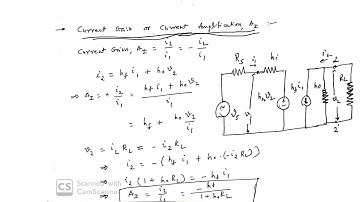 → Current Gain or Current Amplification, A_I :-
Current Gain, A_I = i_L / i_1 = - i_2 / i_1
i_2 = h_f i_1 + h_o v_2
⇒ A_I = + i_2 / i_1 = (h_f i_1 + h_o v_2) / i_1
= h_f + h_o v_2 / i_1
v_2 = i_L R_L = - i_2 R_L
⇒ i_2 = - (h_f i_1 + h_o · (- i_2 R_L))
⇒ i_2 (1 + h_o R_L) = - h_f i_1
⇒ A_I = i_2 / i_1 = - h_f / (1 + h_o R_L)
R_S
i_1
h_i
i_L
2
R_L
h_o
v_S
v_1
h_f i_1
1'
2'
CS
Scanned with
CamScanner